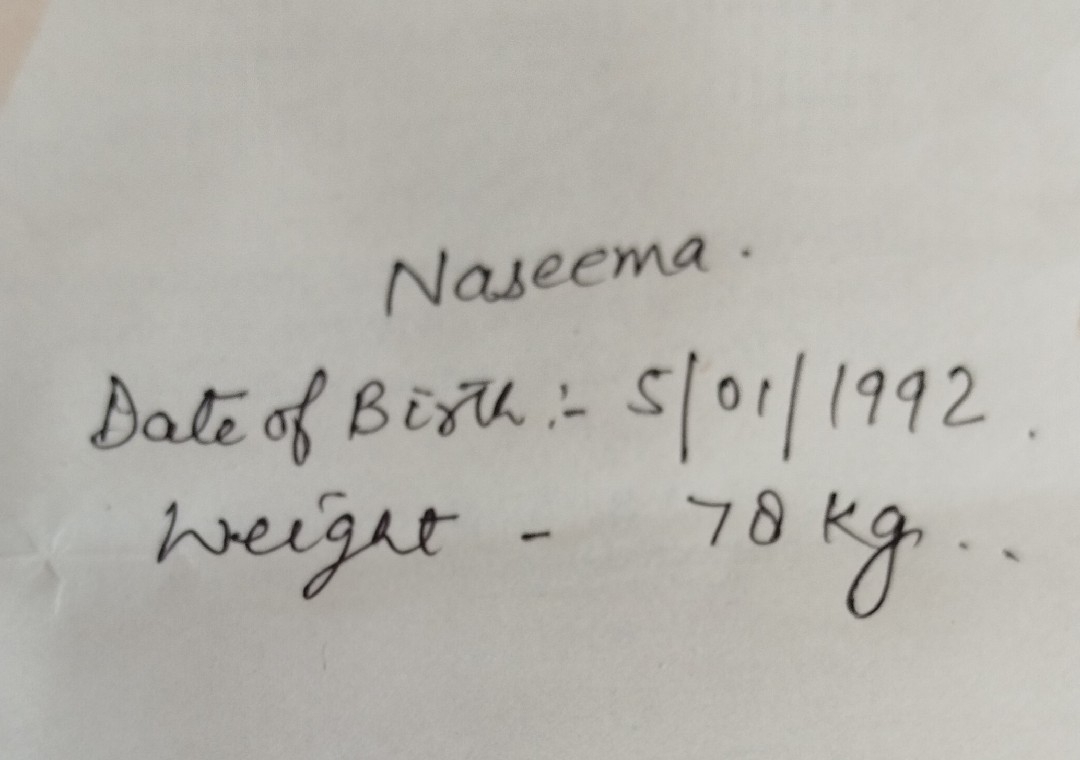 Naseema.
Date of Birth :- 5/01/1992.
Weight - 78 kg..